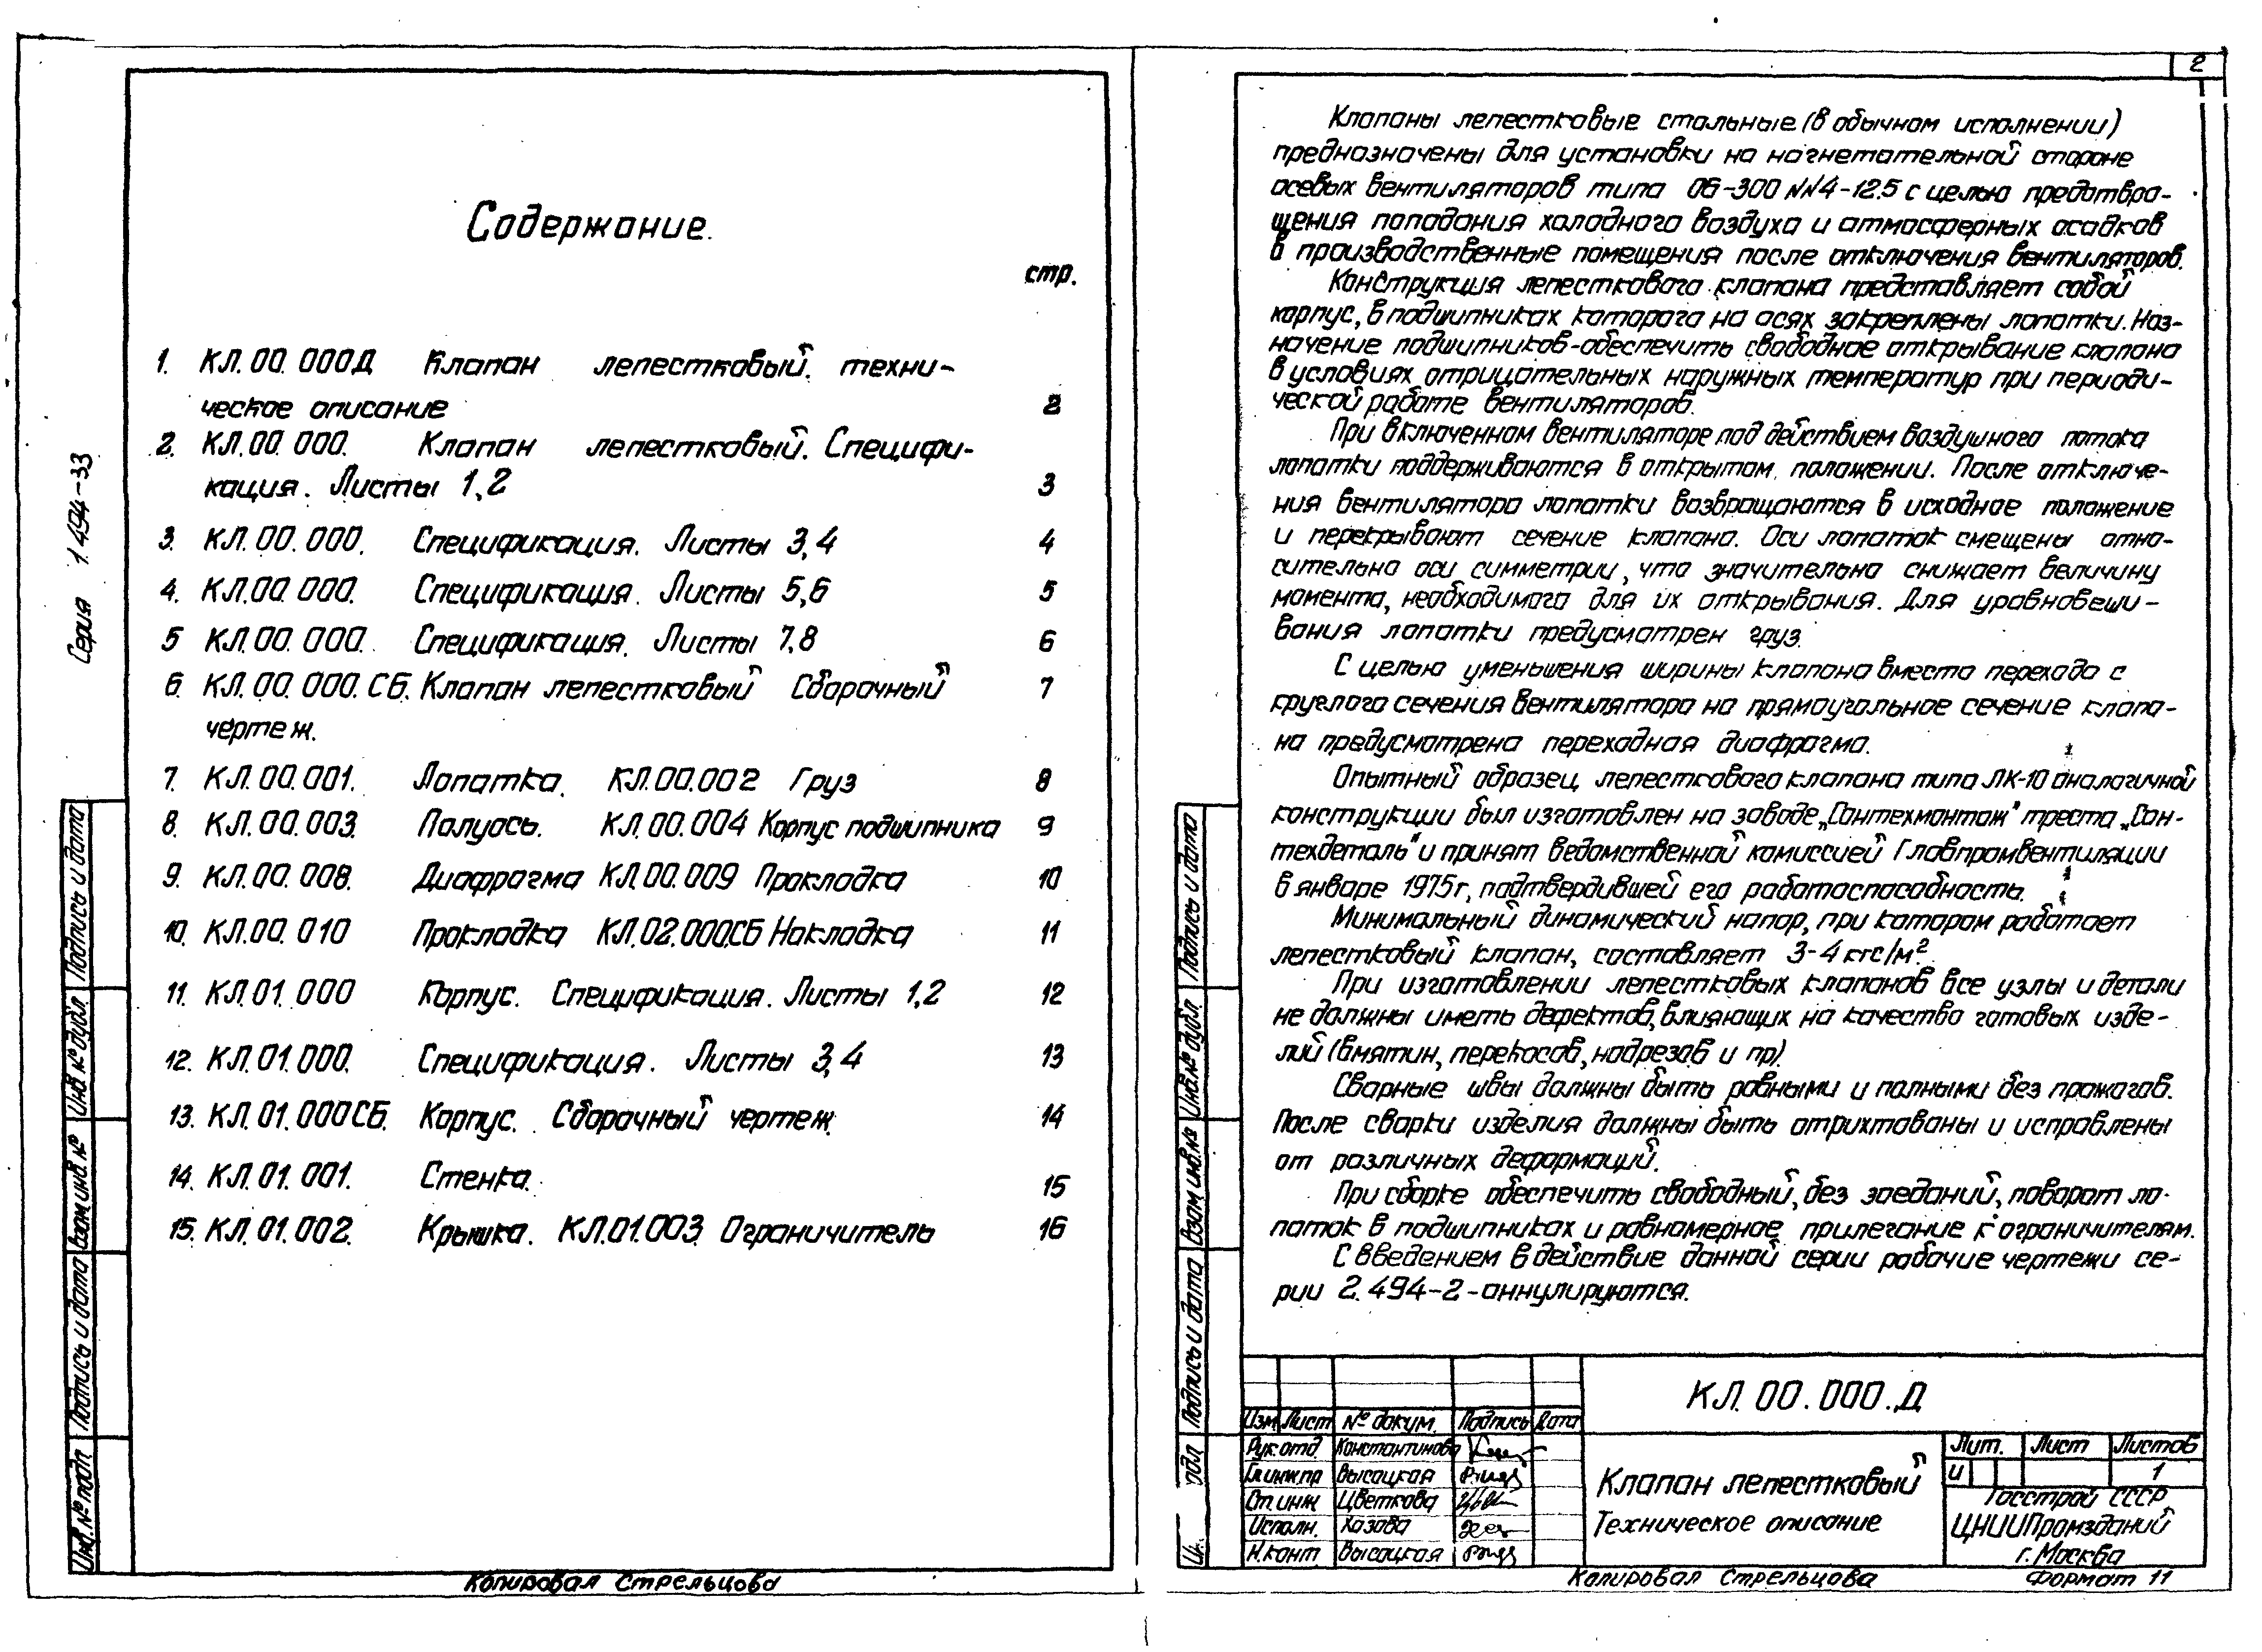 Серия 1.494-33
Содержание.
стр.
1. КЛ.00.000Д Клапан лепестковый. техни-
ческое описание 2
2. КЛ.00.000. Клапан лепестковый. Специфи-
кация. Листы 1,2 3
3. КЛ.00.000. Спецификация. Листы 3,4 4
4. КЛ.00.000. Спецификация. Листы 5,6 5
5 КЛ.00.000. Спецификация. Листы 7,8 6
6. КЛ.00.000.СБ. Клапан лепестковый Сборочный 7
чертеж.
7. КЛ.00.001. Лопатка. КЛ.00.002 Груз 8
8. КЛ.00.003. Полуось. КЛ.00.004 Корпус подшипника 9
9. КЛ.00.008. Диафрагма КЛ.00.009 Прокладка 10
10. КЛ.00.010 Прокладка КЛ.02.000СБ Накладка 11
11. КЛ.01.000 Корпус. Спецификация. Листы 1,2 12
12. КЛ.01.000. Спецификация. Листы 3,4 13
13. КЛ.01.000СБ. Корпус. Сборочный чертеж. 14
14. КЛ.01.001. Стенка. 15
15. КЛ.01.002. Крышка. КЛ.01.003. Ограничитель 16
Подпись и дата
Инв.№ дубл.
Взам.инв.№
Подпись и дата
Инв.№ подл
Копировал Стрельцова
2
Клапаны лепестковые стальные (в обычном исполнении)
предназначены для установки на нагнетательной стороне
осевых вентиляторов типа 06-300 NN4-12.5 с целью предотвра-
щения попадания холодного воздуха и атмосферных осадков
в производственные помещения после отключения вентиляторов.
Конструкция лепесткового клапана представляет собой
корпус, в подшипниках которого на осях закреплены лопатки. Наз-
начение подшипников-обеспечить свободное открывание клапана
в условиях отрицательных наружных температур при периоди-
ческой работе вентиляторов.
При включенном вентиляторе под действием воздушного потока
лопатки поддерживаются в открытом положении. После отключе-
ния вентилятора лопатки возвращаются в исходное положение
и перекрывают сечение клапана. Оси лопаток смещены отно-
сительно оси симметрии, что значительно снижает величину
момента, необходимого для их открывания. Для уравновеши-
вания лопатки предусмотрен груз.
С целью уменьшения ширины клапана вместо перехода с
круглого сечения вентилятора на прямоугольное сечение клапа-
на предусмотрена переходная диафрагма.
Опытный образец лепесткового клапана типа ЛК-10 аналогичной
конструкции был изготовлен на заводе „Сантехмонтаж" треста „Сан-
техдеталь" и принят ведомственной комиссией Главпромвентиляции
в январе 1975г, подтвердившей его работоспособность.
Минимальный динамический напор, при котором работает
лепестковый клапан, составляет 3-4 кгс/м².
При изготовлении лепестковых клапанов все узлы и детали
не должны иметь дефектов, влияющих на качество готовых изде-
лий (вмятин, перекосов, надрезов и пр).
Сварные швы должны быть ровными и полными без прожогов.
После сварки изделия должны быть отрихтованы и исправлены
от различных деформаций.
При сборке обеспечить свободный, без заеданий, поворот ло-
паток в подшипниках и равномерное прилегание к ограничителям.
С введением в действие данной серии рабочие чертежи се-
рии 2.494-2-аннулируются.
Подпись и дата
Инв.№ дубл.
Взам.инв.№
Подпись и дата
подл
КЛ.00.000.Д
Изм Лист № докум. Подпись Дата
Рук.отд. Константинова
Гл.инж.пр Высоцкая
Ст.инж Цветкова
Исполн. Хазова
Н.конт Высоцкая
Клапан лепестковый
Техническое описание
Лит. Лист Листов
И 1
Госстрой СССР
ЦНИИПромзданий
г.Москва
Копировал Стрельцова Формат 11